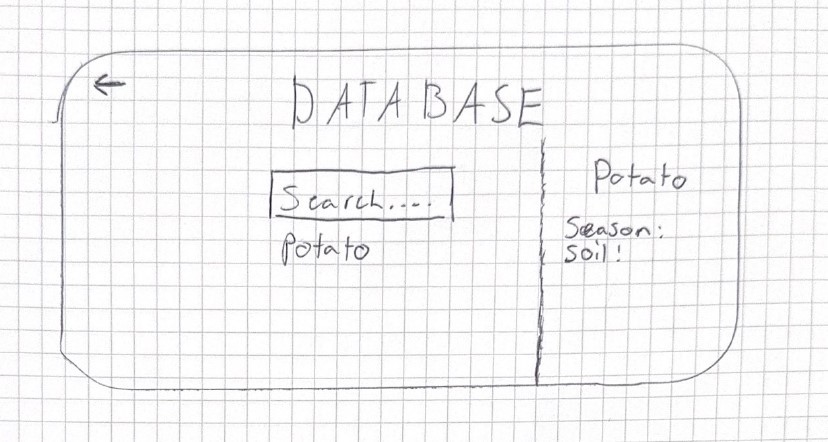 DATABASE
Search....
Potato
Potato
Season:
Soil: